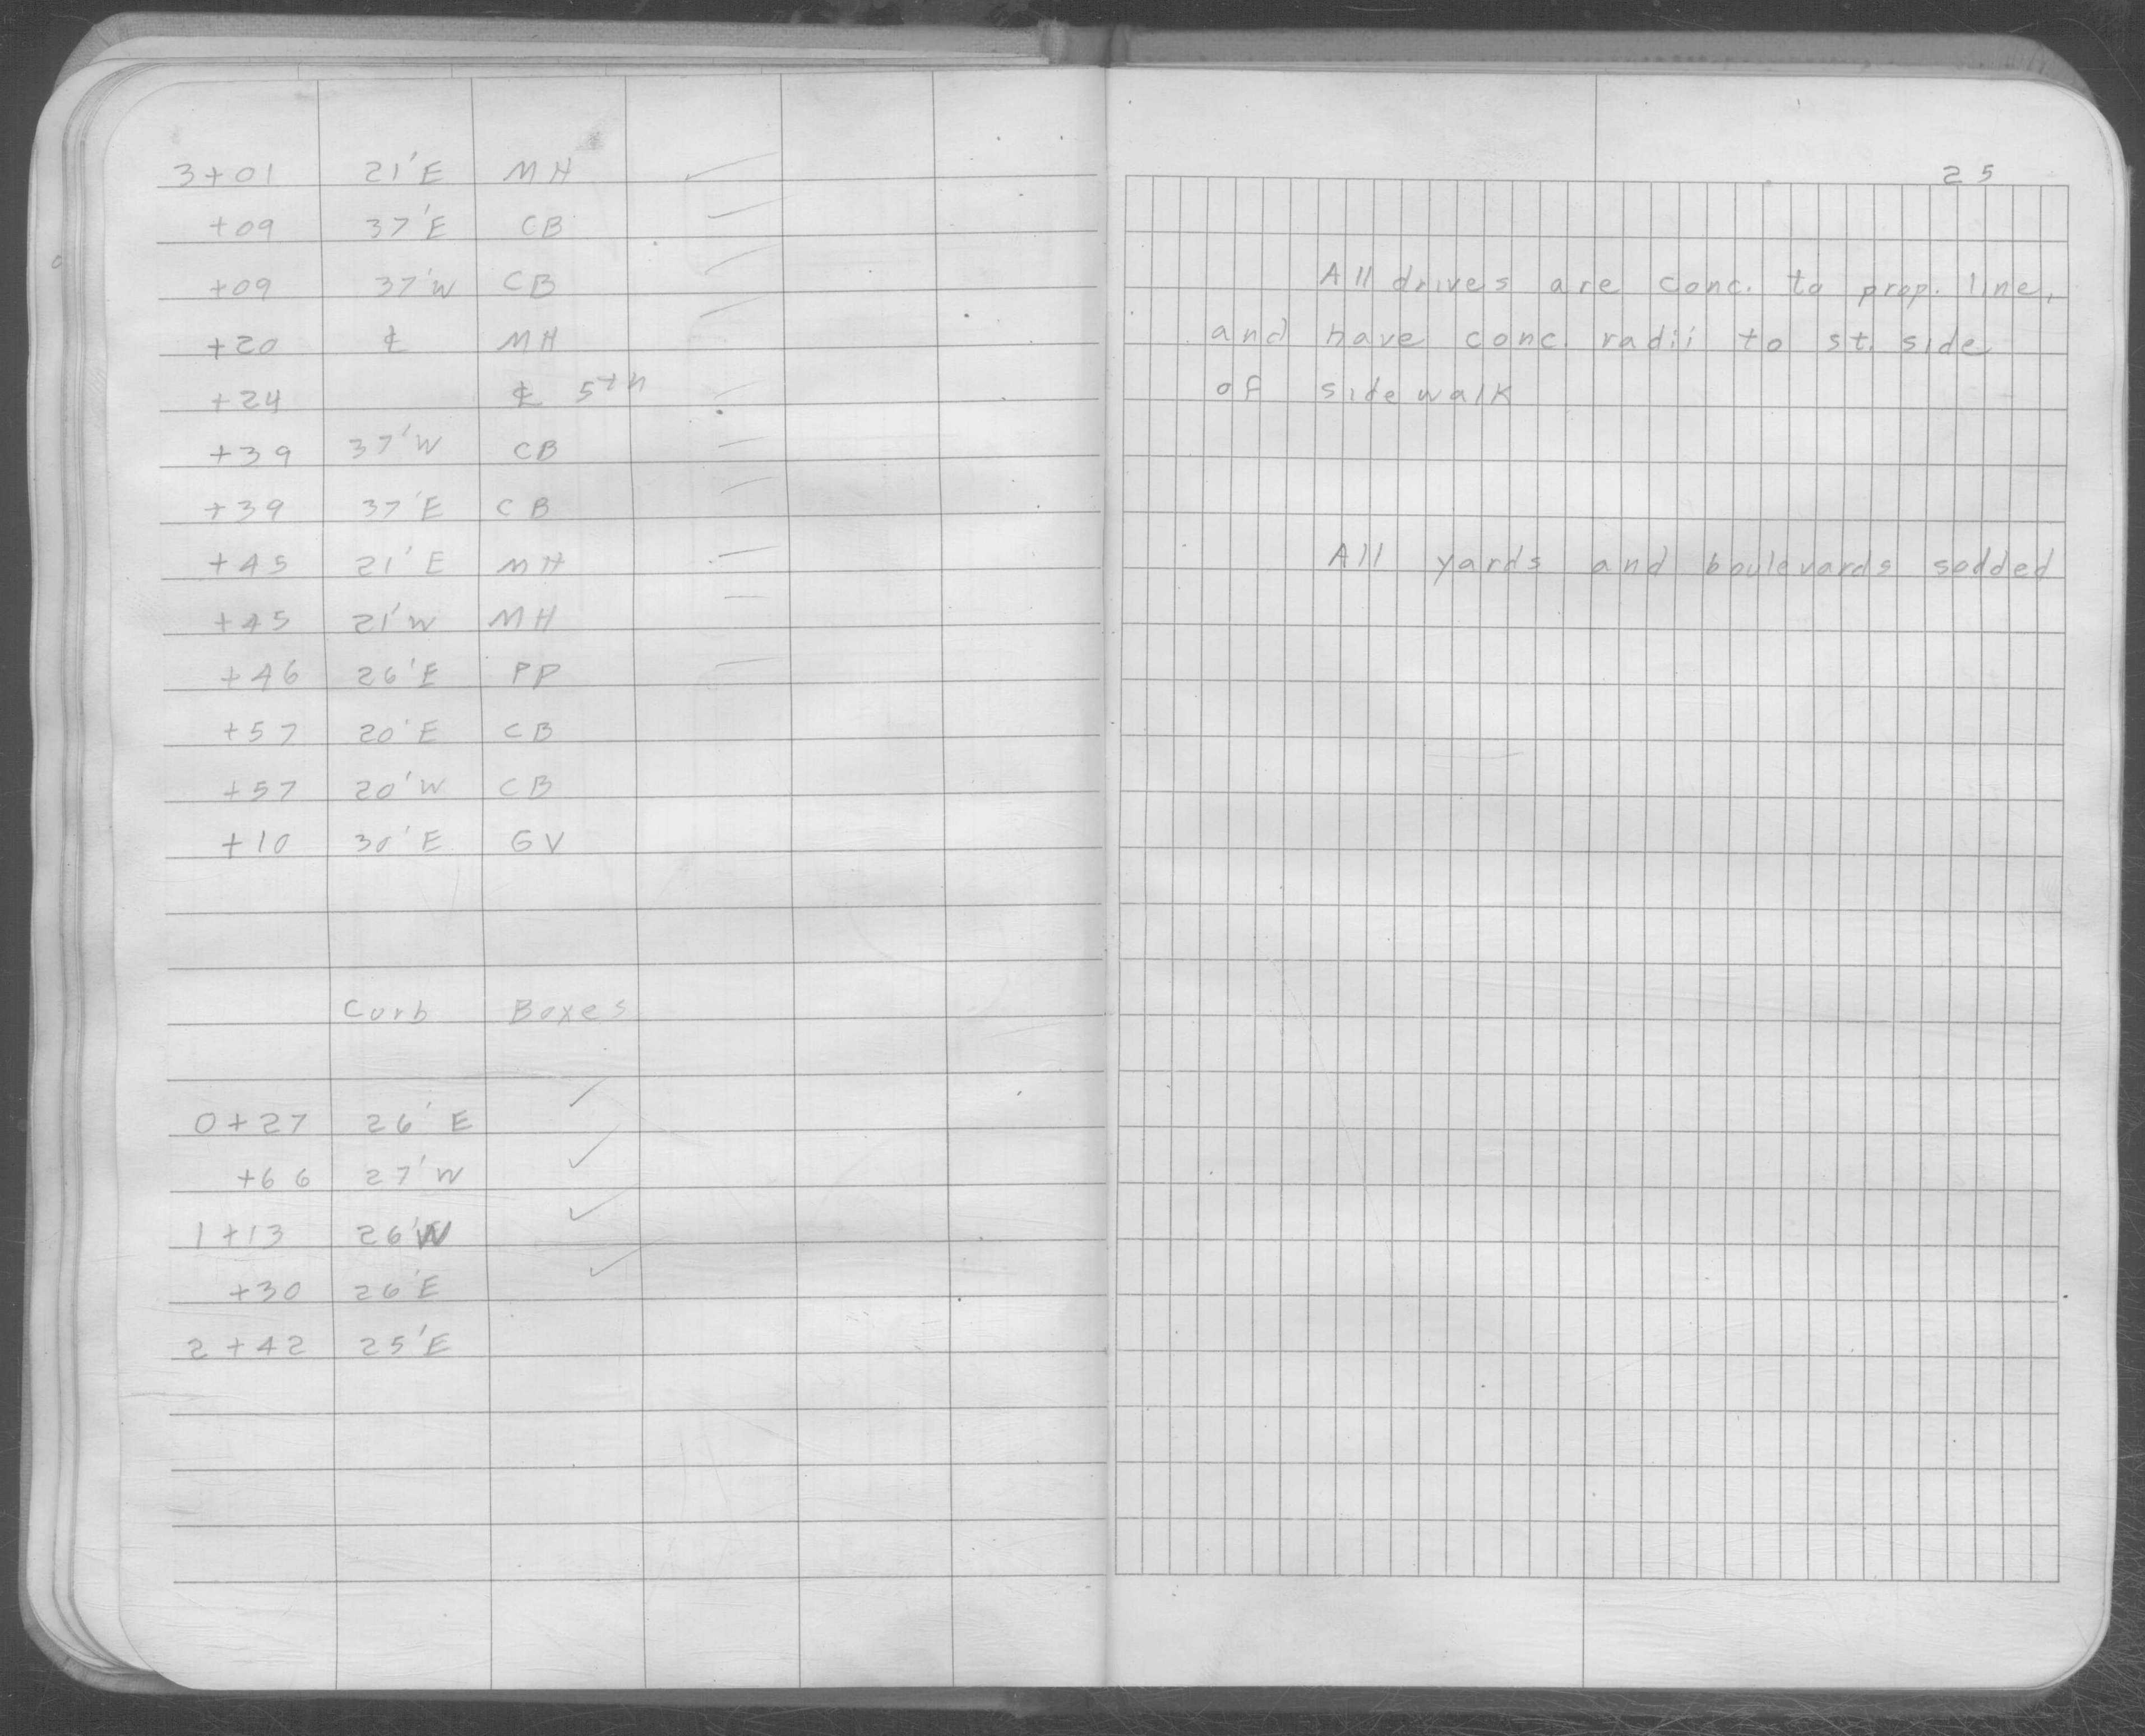 3+01 21'E MH ✓
+09 37'E CB
+09 37'W CB
+20 ℄ MH
+24 ℄ 5th
+39 37'W CB
+39 37'E CB
+45 21'E MH
+45 21'W MH
+46 26'E PP
+57 20'E CB
+57 20'W CB
+10 30'E GV
Curb Boxes
0+27 26'E ✓
+66 27'W ✓
1+13 26'W ✓
+30 26'E ✓
2+42 25'E
25
All drives are conc. to prop. line,
and have conc. radii to st. side
of sidewalk
All yards and boulevards sodded